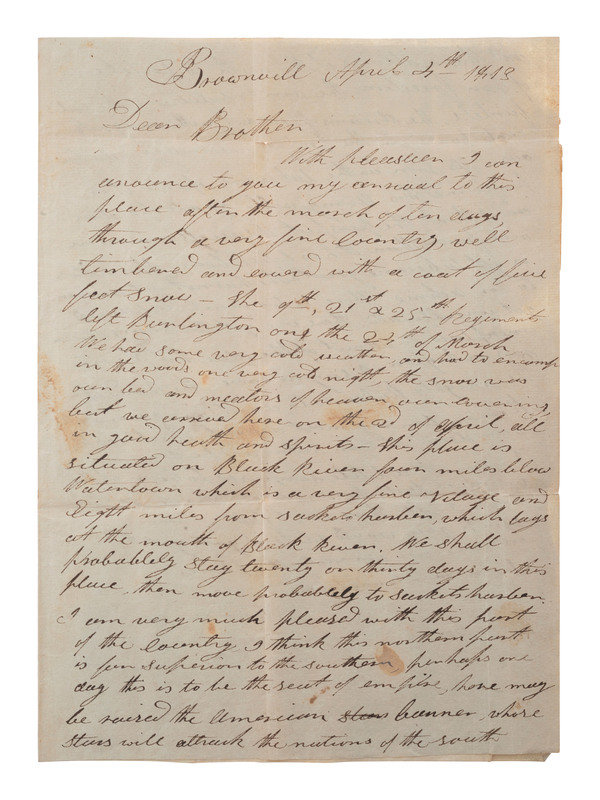 Brownvill April 4th 1813
Dear Brother
With pleasuer I can
anounce to you my arrival to this
place after the march of ten days,
through a very fine Country, well
timbered and covered with a coat of five
feet snow – The 9th, 21st & 25th Regiments
left Burlington on the 24th of March
We had some very cold weather, and had to encamp
in the woods one very cold night, the snow was
our bed and meators of heaven our covering
but we arrived here on the 2d of April, all
in good health and spirits – This place is
situated on Black River four miles blow
Watertown which is a very fine Village and
Eight miles from Sackets harber, which lays
at the mouth of Black River. We shall
probablely stay twenty or thirty days in this
place, then move probablely to Sackets harber.
I am very much pleased with this part
of the Country I think this northern part
is fur superior to the southern perhaps one
day this is to be the seat of empire, hare may
be raized the American stars banner, whose
stars will attrack the nations of the south